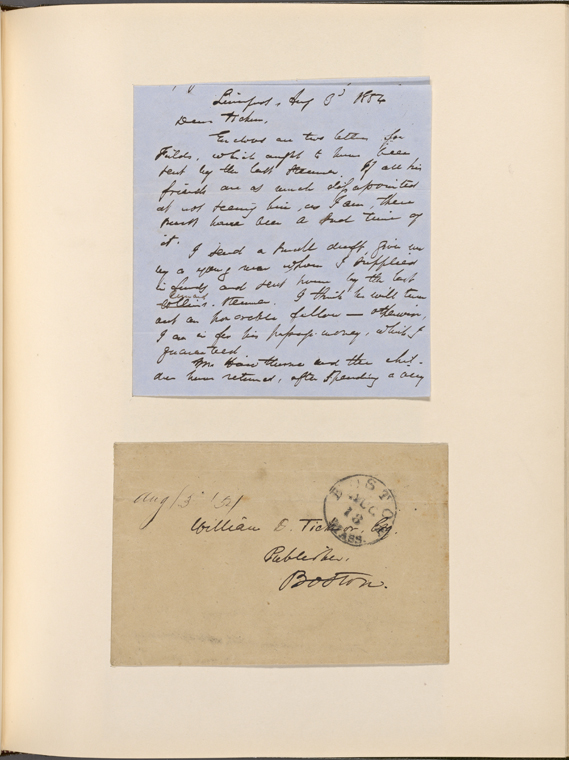 Liverpool, Aug 3d 1854
Dear Ticknor,
Enclosed are two letters for
Fields, which ought to have been
sent by the last steamer. If all his
friends are as much disappointed
at not seeing him, as I am, there
must have been a sad time of
it.
I send a small draft, given me
by a young man whom I supplied
in funds, and sent home by the last
Collins steamer. I think he will turn
out an honorable fellow — otherwise,
I am in for his passage-money, which I
guaranteed.
Mrs Hawthorne and the chil-
dren have returned, after spending a very
Aug 3d 54
BOSTON
AUG
18
MASS.
William D. Ticknor, Esq.
Publisher,
Boston.